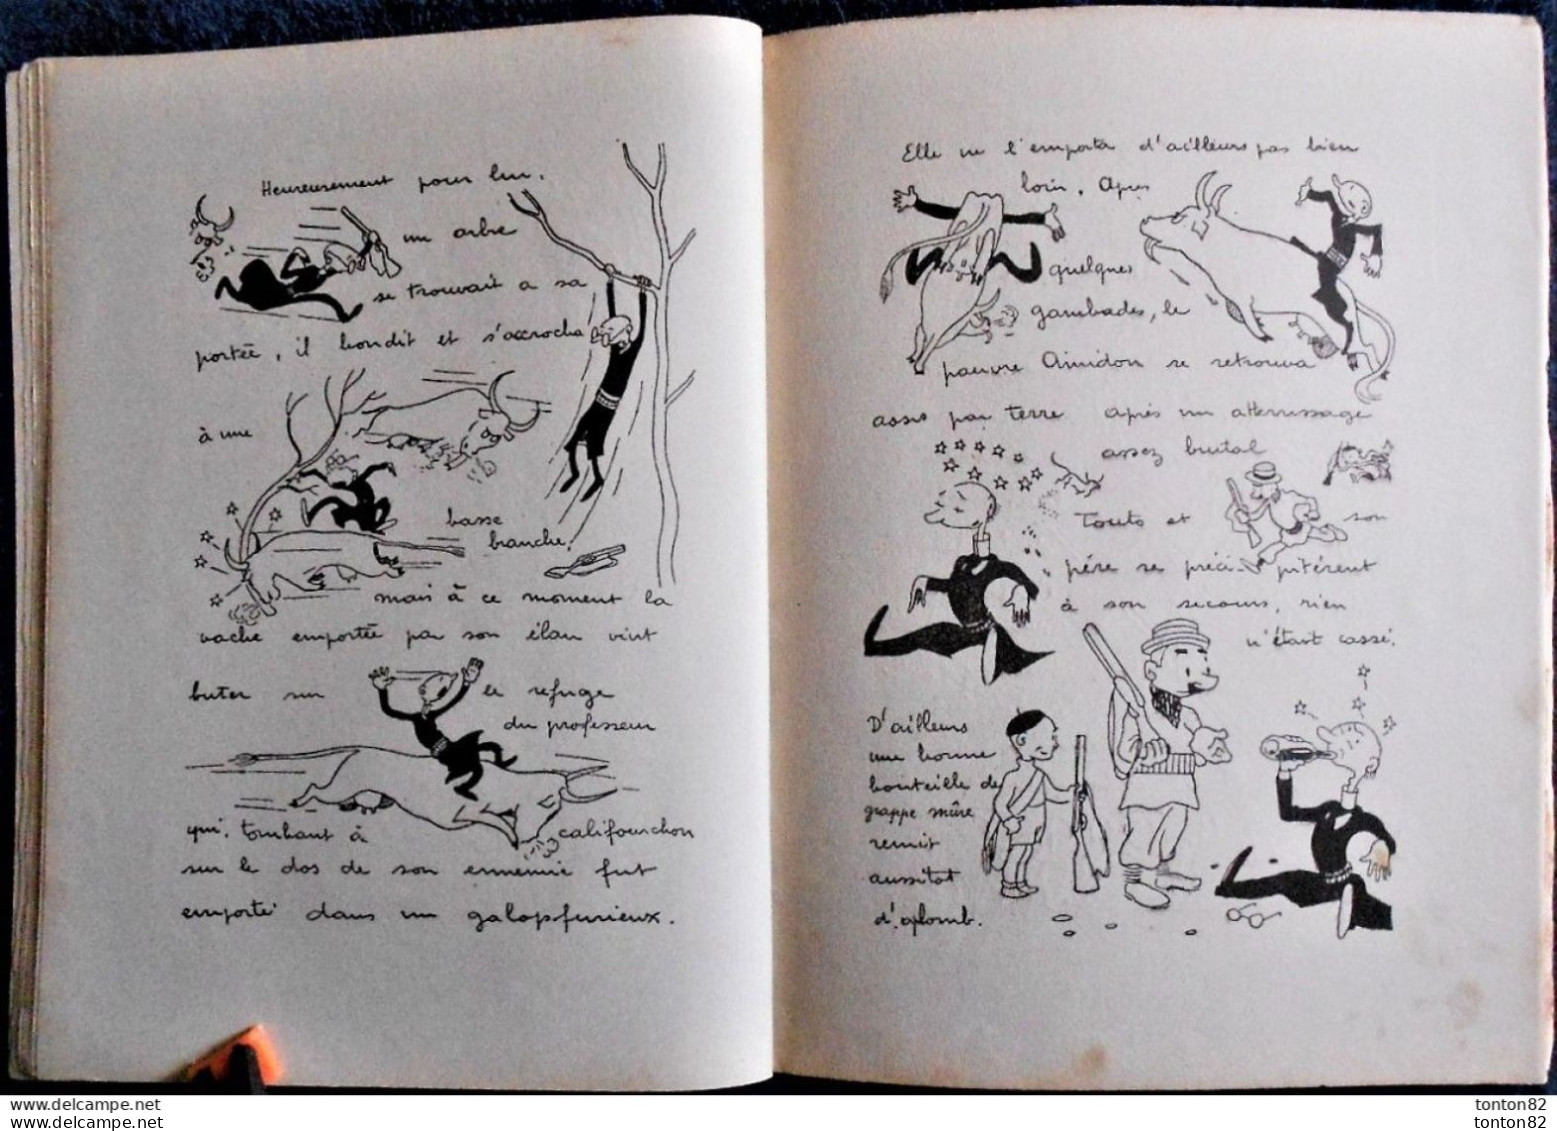 Heureusement pour lui,
un arbre
se trouvait a sa
portée, il bondit et s'accrocha
à une
basse
branche.
mais à ce moment la
vache emportée par son élan vint
buter sur le refuge
du professeur
qui, tombant à califourchon
sur le dos de son ennemie fut
emporté dans un galop furieux.
Elle ne l'emporta d'ailleurs pas bien
loin. Après
quelques
gambades, le
pauvre Amidon se retrouva
assis par terre après un atterrissage
assez brutal
Touto et son
père se préci- pitèrent
à son secours, rien
n'était cassé.
D'ailleurs
une bonne
bouteille de
grappe mûre
remit
aussitot
d'aplomb.
tonton82
tonton82
tonton82
tonton82